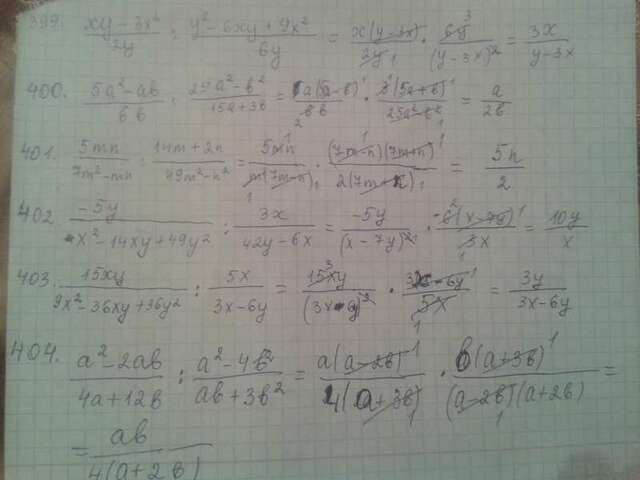 399. (xy - 3x²)/(2y) : (y² - 6xy + 9x²)/(6y) = (x(y - 3x))/(2y) 1 · (6y) 3/((y - 3x)²) = (3x)/(y - 3x)
400. (5a² - ab)/(6b) : (25a² - b²)/(15a + 3b) = (a(5a - b) 1)/(6b) 2 · (3(5a + b) 1)/(25a² - b²) 1 = a/(2b)
401. (5mn)/(7m² - mn) : (14m + 2n)/(49m² - n²) = (5mn 1)/(m(7m - n)) 1 · ((7m - n)(7m + n) 1)/(2(7m + n)) 1 = (5n)/2
402 (-5y)/(x² - 14xy + 49y²) : (3x)/(42y - 6x) = (-5y)/((x - 7y)²) 1 · (-6 2 (x - 7y) 1)/(3x) 1 = (10y)/x
403. (15xy)/(9x² - 36xy + 36y²) : (5x)/(3x - 6y) = (15xy) 3/((3x - 6y)²) · (3x - 6y 1)/(5x) 1 = (3y)/(3x - 6y)
404. (a² - 2ab)/(4a + 12b) : (a² - 4b²)/(ab + 3b²) = (a(a - 2b) 1)/(4(a + 3b)) 1 · (b(a + 3b) 1)/((a - 2b)(a + 2b)) 1 =
= (ab)/(4(a + 2b))